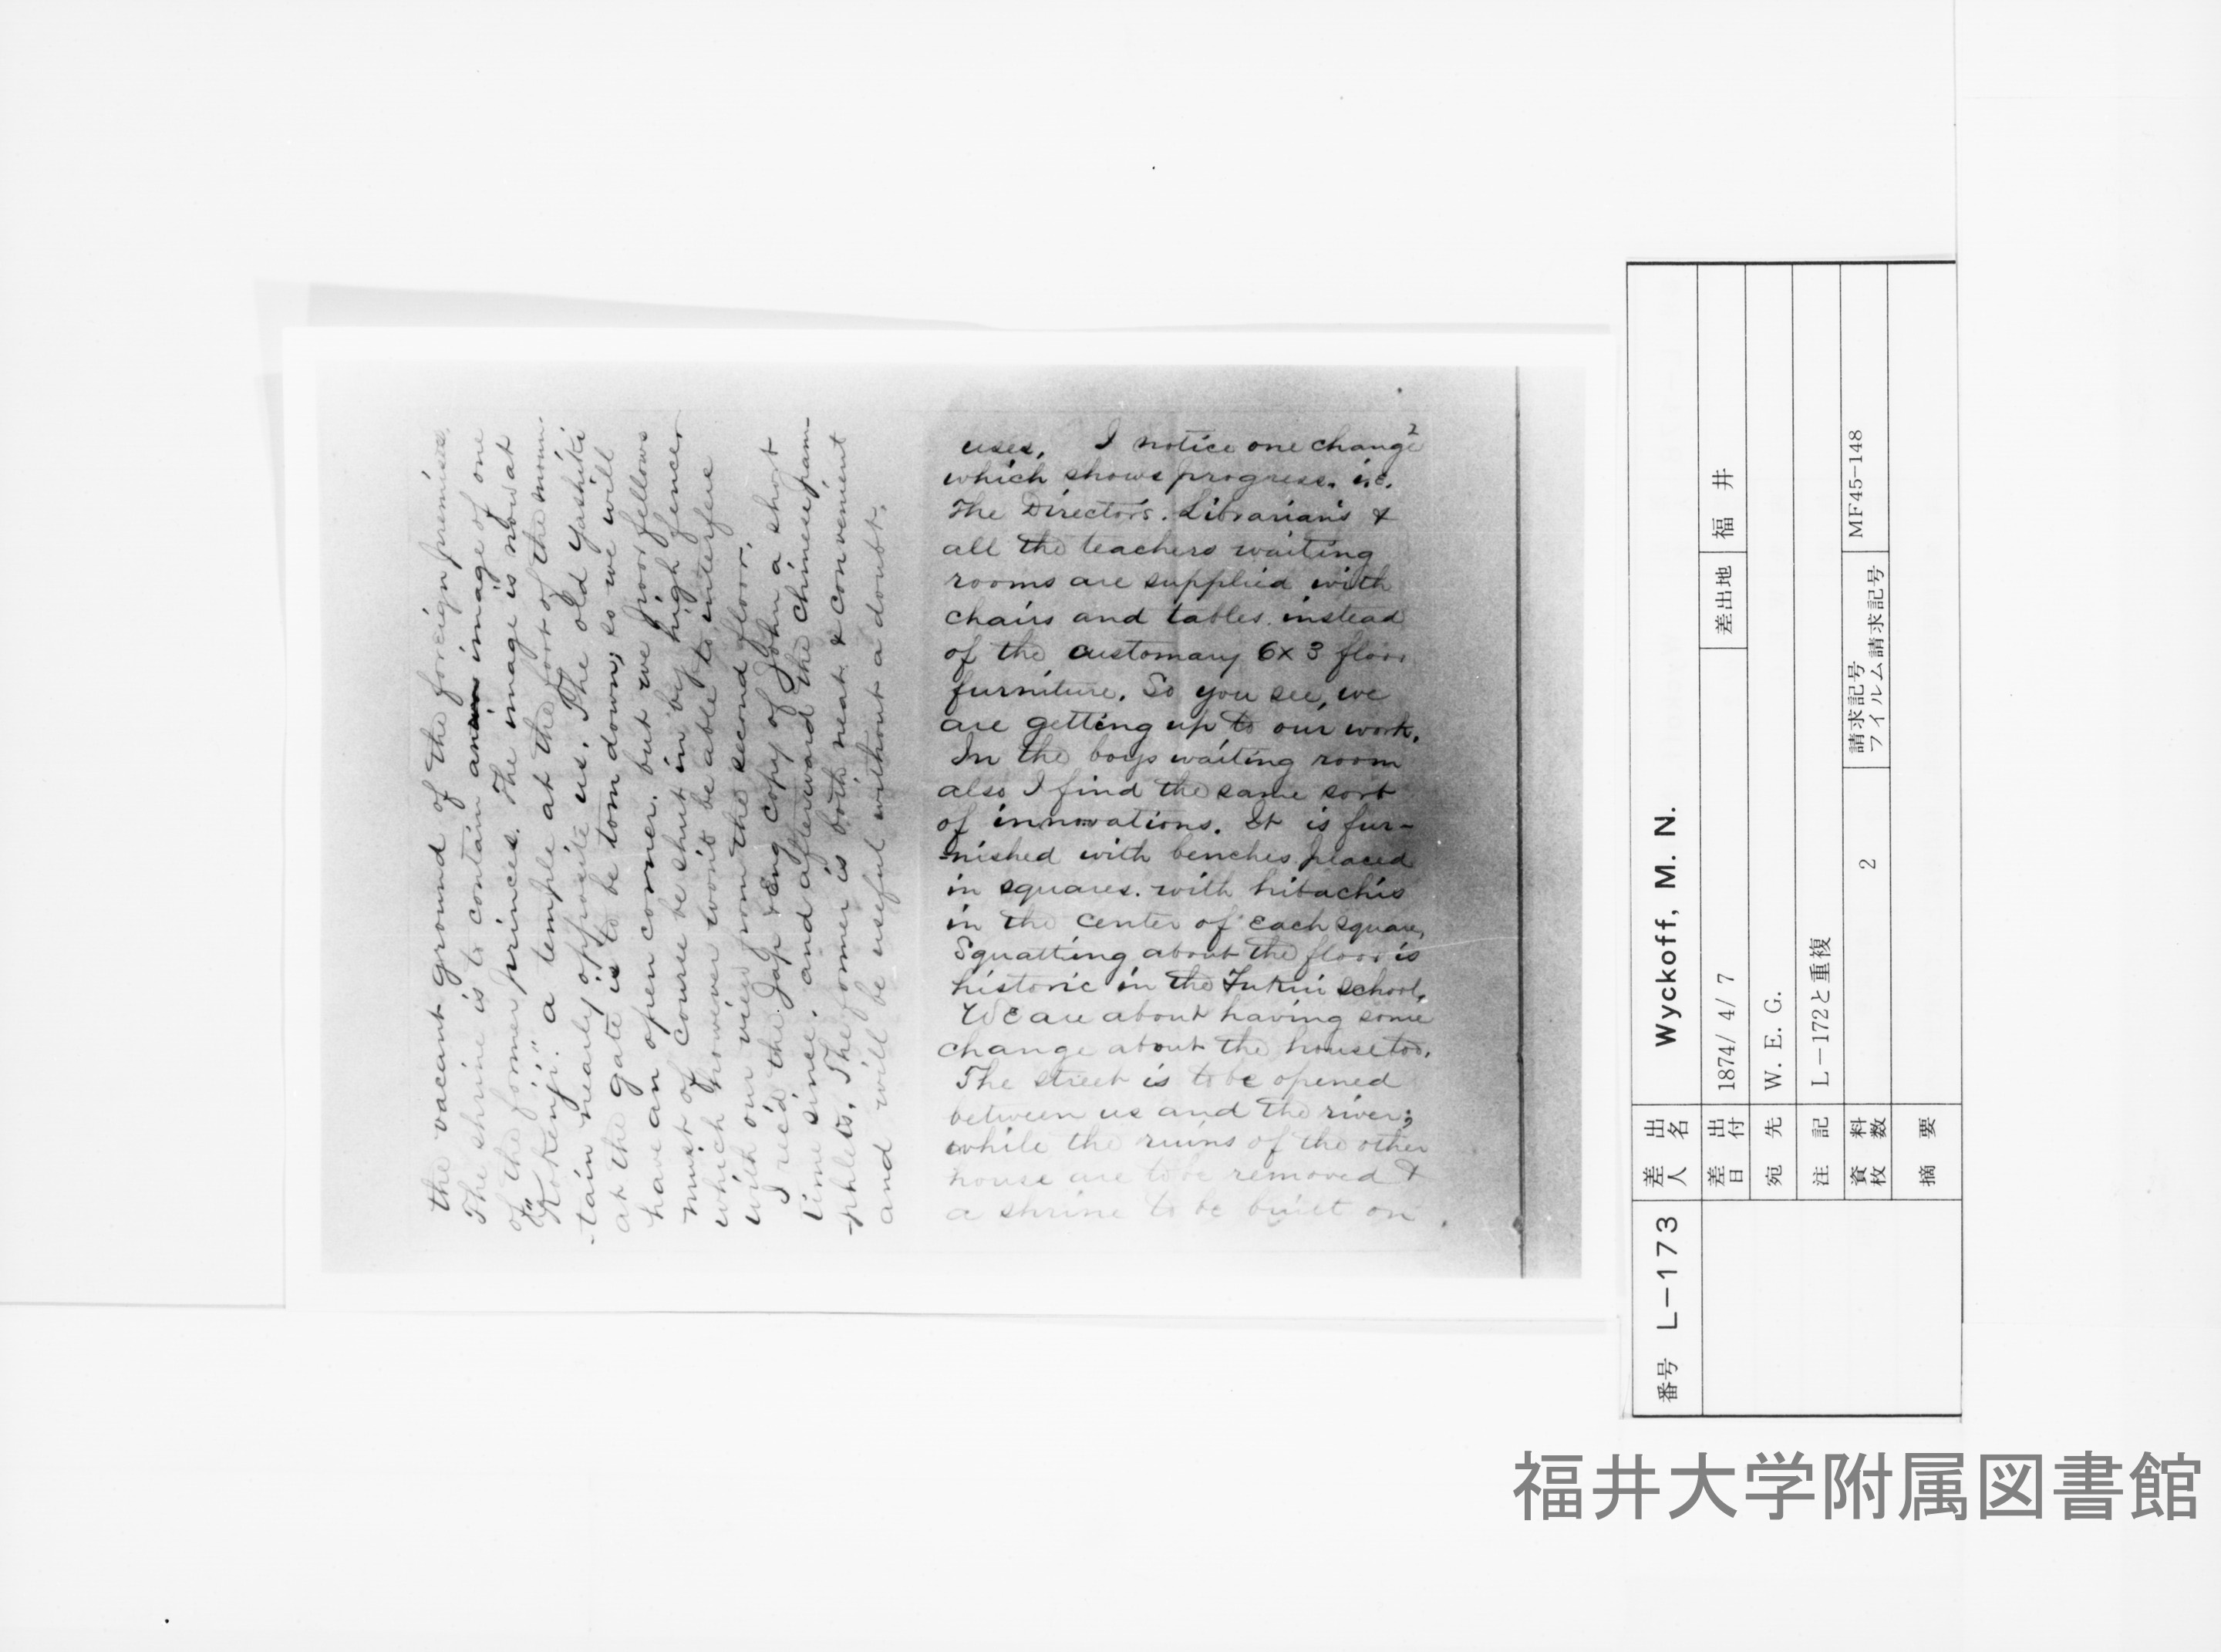 2
uses. I notice one change
which shows progress. i.e.
The Director's. Librarian's &
all the teachers waiting
rooms are supplied with
chairs and tables. instead
of the customary 6x3 floor
furniture. So you see, we
are getting up to our work.
In the boys waiting room
also I find the same sort
of innovations. It is fur-
-nished with benches placed
in squares. with hibachis
in the center of each square,
Squatting about the floor is
historic in the Fukui school.
We are about having some
change about the house too.
The street is to be opened
between us and the river;
while the ruins of the other
house are to be removed &
a shrine to be built on
the vacant ground of the foreign premises.
The shrine is to contain an image of one
of the former princes. The image is now at
"Kokenji." a temple at the foot of the moun-
-tain nearly opposite us. The old Yashiki
at the gate is to be torn down; so we will
have an open corner. but we poor fellows
must of course be shut in by high fence
which however won't be able to interfere
with our view from the second floor.
I rec'd the Jap & Eng copy of John a short
time since, and afterward the Chinese pam-
-phlets. The former is both neat & convenient
and will be useful without a doubt.
番号 L-173
差出人名 Wyckoff, M. N.
差出日付 1874/ 4/ 7 差出地 福井
宛先 W. E. G.
注記 L-172と重複
資料枚数 2 請求記号 フィルム請求記号 MF45-148
摘要
福井大学附属図書館